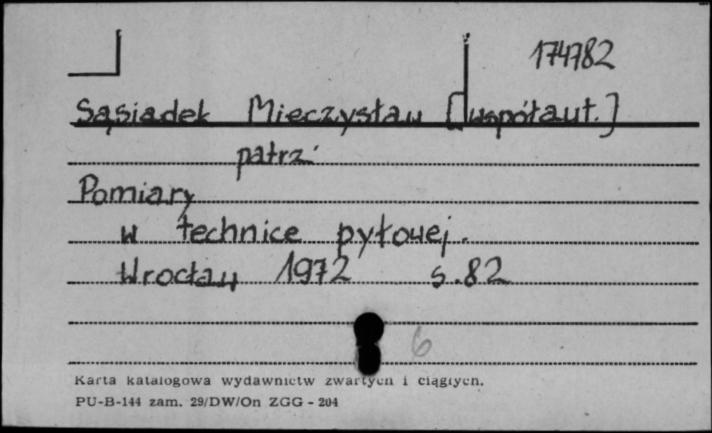 174782
Sąsiadek Mieczysław [współaut.]
patrz:
Pomiary
w technice pyłowej.
Wrocław 1972 s.82
6
Karta katalogowa wydawnictw zwartych i ciągłych.
PU-B-144 zam. 29/DW/On ZGG - 204